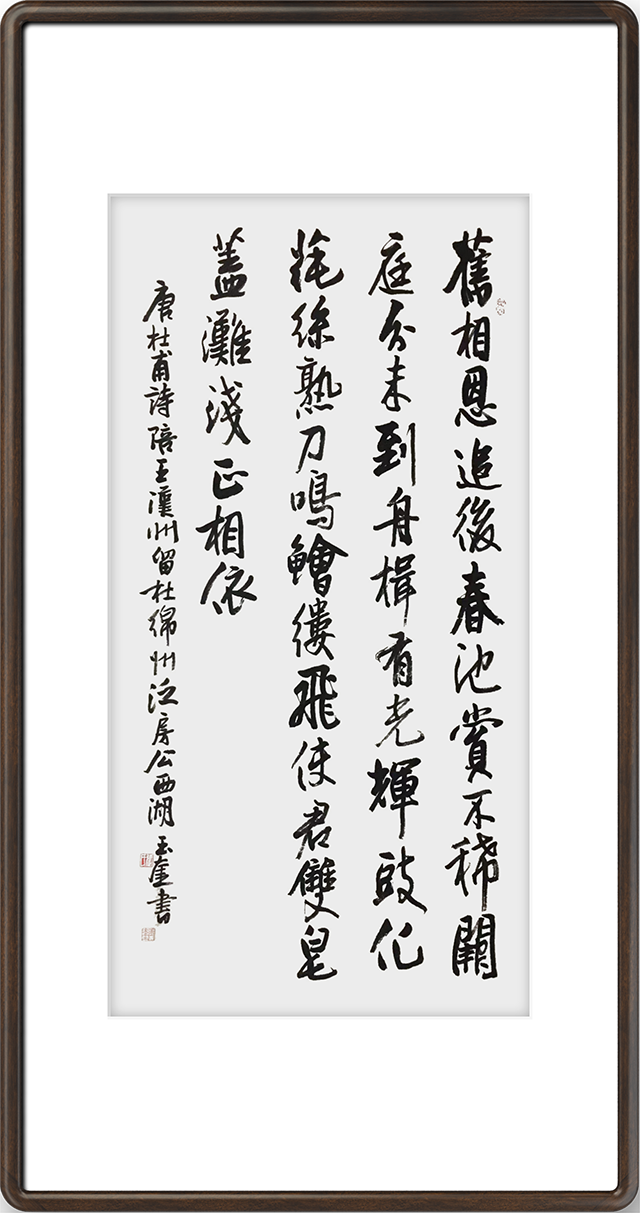 舊相恩追後春池賞不稀闕
庭分未到舟楫有光輝豉化
絲熟刀鳴鱠縷飛使君雙皂
蓋灘淺正相依
唐杜甫詩陪王漢州留杜綿州泛房公西湖 玉奎書